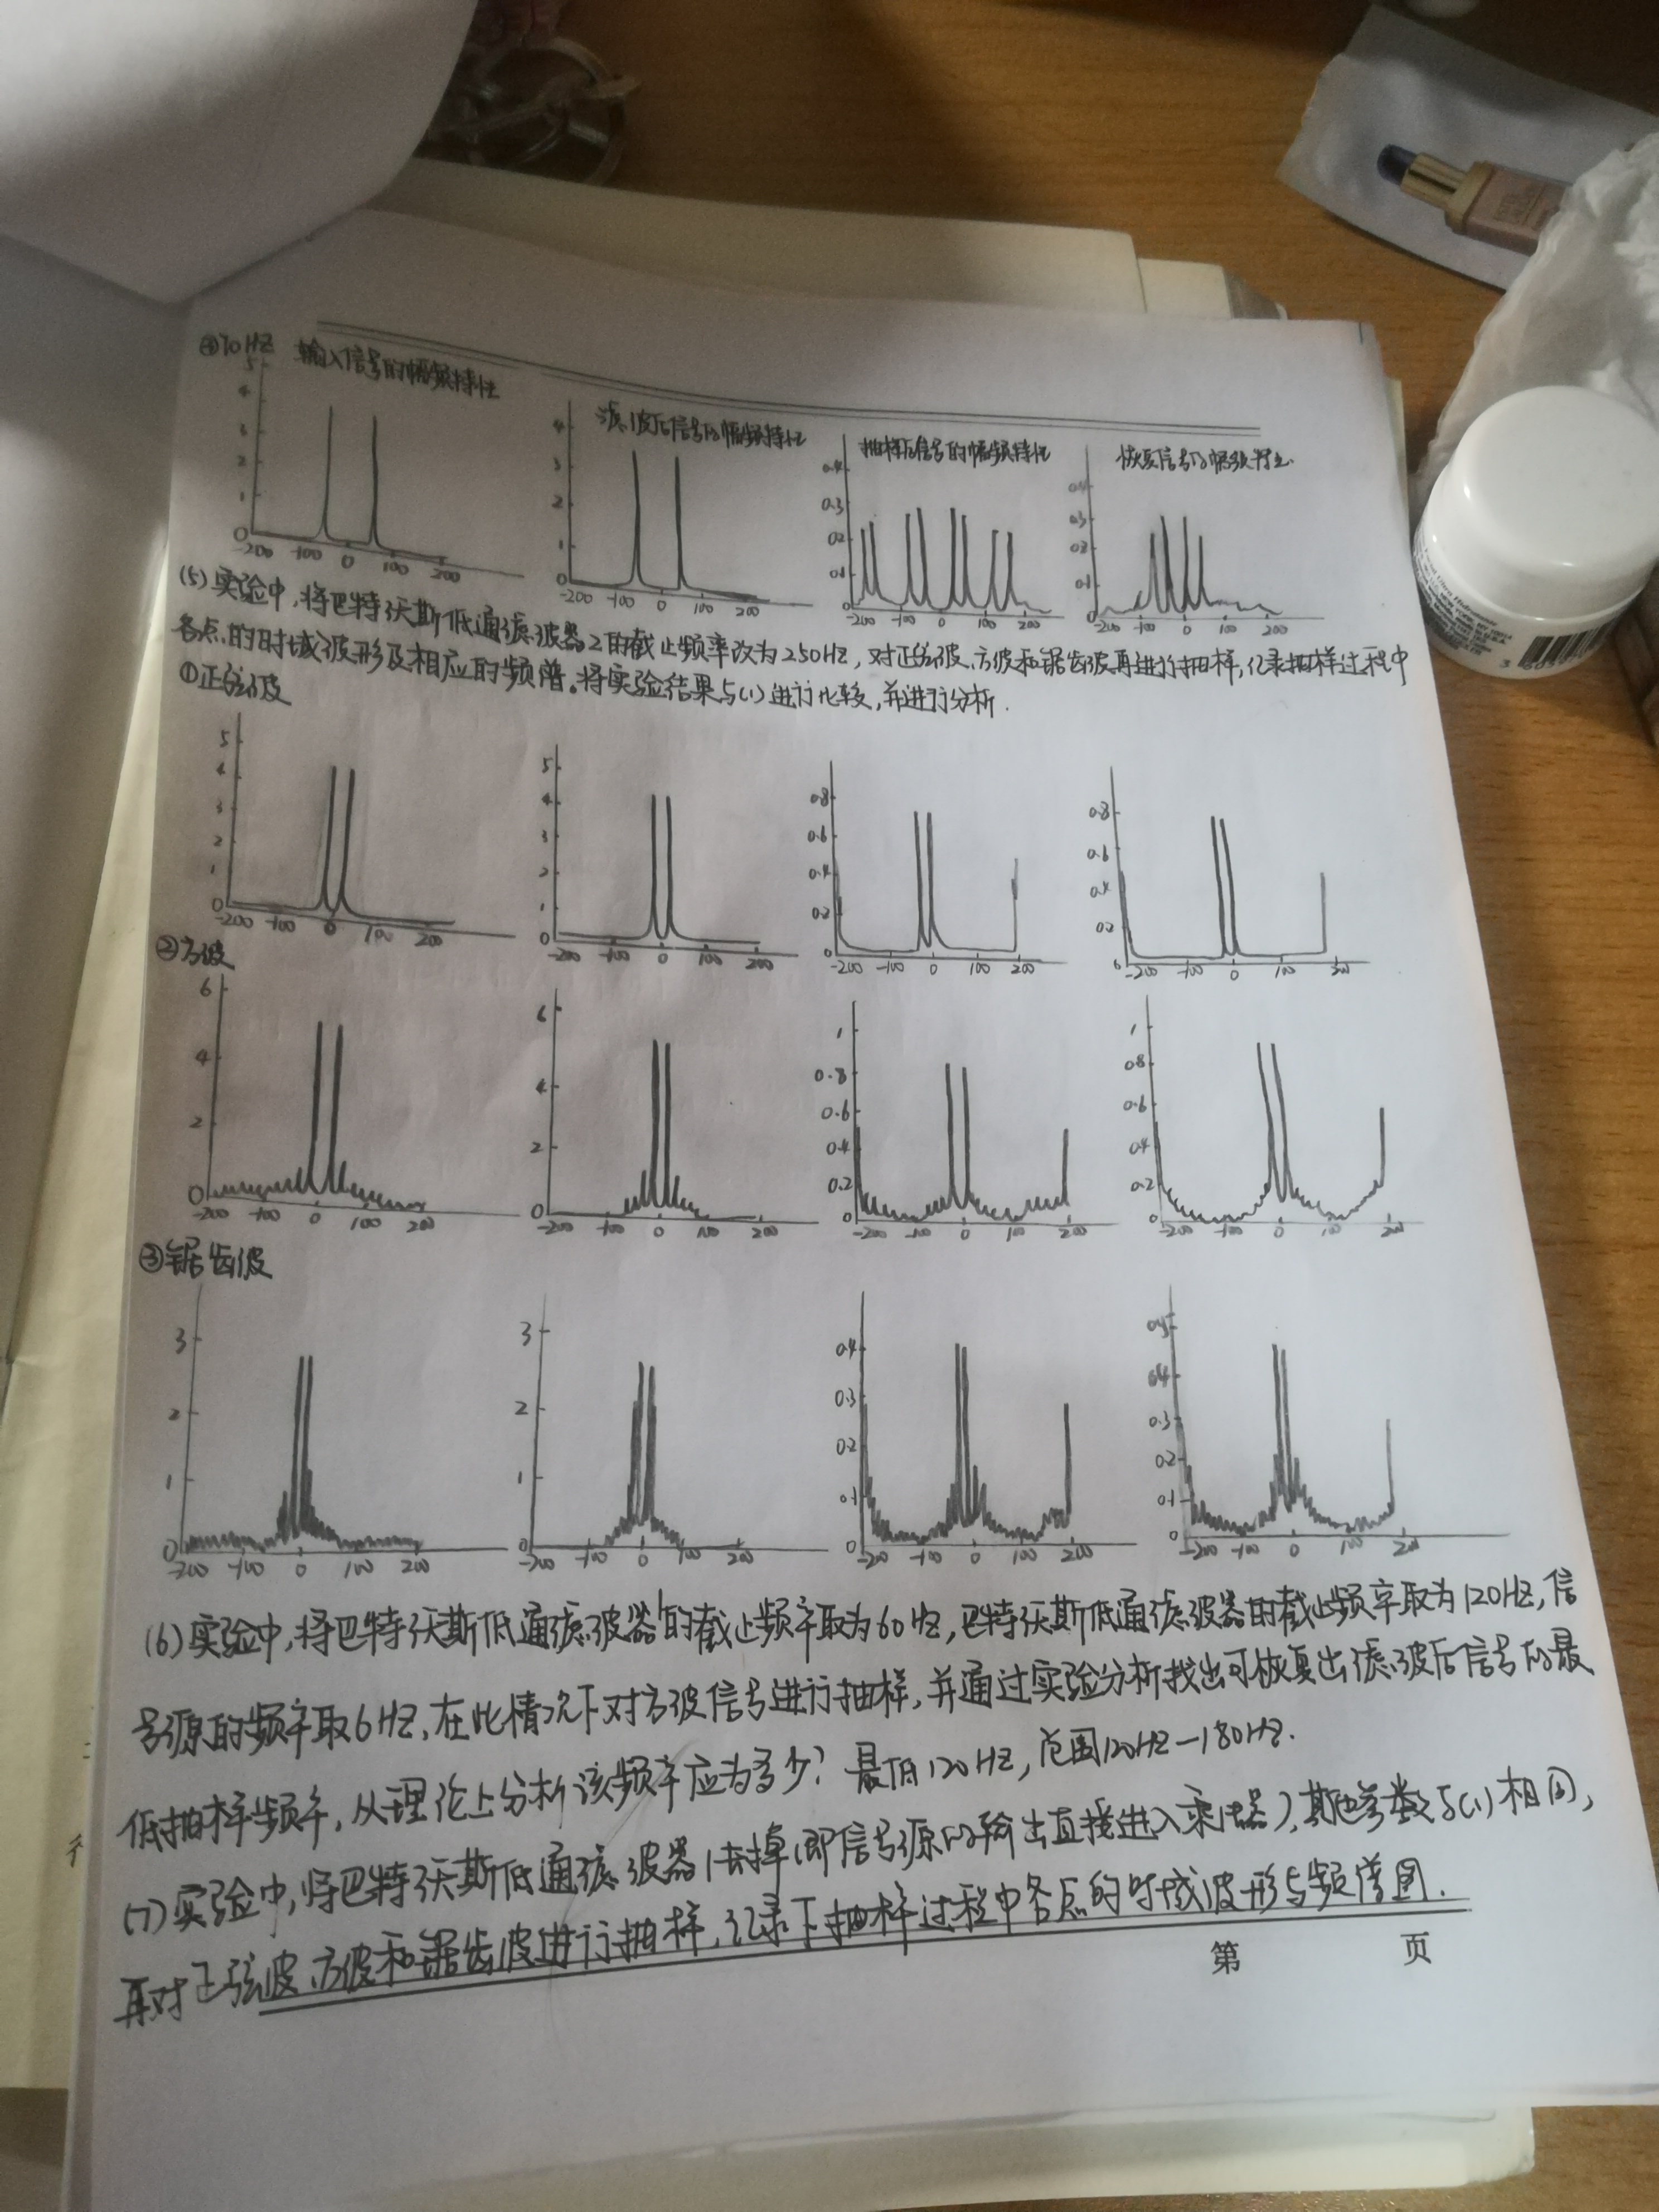 ④70HZ 输入信号的幅频特性
滤波后信号的幅频特性
抽样后信号的幅频特性
恢复信号的幅频特性.
5 4 3 2 1 0 -200 -100 0 100 200
4 3 2 1 0 -200 -100 0 100 200
0.4 0.3 0.2 0.1 0 -200 -100 0 100 200
0.4 0.3 0.2 0.1 0 -200 -100 0 100 200
(5)实验中,将巴特沃斯低通滤波器2的截止频率改为250HZ,对正弦波、方波和锯齿波再进行抽样,记录抽样过程中
各点的时域波形及相应的频谱。将实验结果与(1)进行比较,并进行分析.
①正弦波
5 4 3 2 1 0 -200 -100 0 100 200
5 4 3 2 1 0 -200 -100 0 100 200
0.8 0.6 0.4 0.2 0 -200 -100 0 100 200
0.8 0.6 0.4 0.2 0 -200 -100 0 100 200
②方波
6 4 2 0 -200 -100 0 100 200
6 4 2 0 -200 -100 0 100 200
1 0.8 0.6 0.4 0.2 0 -200 -100 0 100 200
1 0.8 0.6 0.4 0.2 0 -200 -100 0 100 200
③锯齿波
3 2 1 0 -200 -100 0 100 200
3 2 1 0 -200 -100 0 100 200
0.4 0.3 0.2 0.1 0 -200 -100 0 100 200
0.5 0.4 0.3 0.2 0.1 0 -200 -100 0 100 200
(6)实验中,将巴特沃斯低通滤波器1的截止频率取为60HZ,巴特沃斯低通滤波器的截止频率取为120HZ,信
号源的频率取6HZ,在此情况下对方波信号进行抽样,并通过实验分析找出可恢复出滤波后信号的最
低抽样频率,从理论上分析该频率应为多少?最低120HZ,范围120HZ—180HZ.
(7)实验中,将巴特沃斯低通滤波器1去掉(即信号源的输出直接进入乘法器),其他参数与(1)相同,
再对正弦波、方波和锯齿波进行抽样,记录下抽样过程中各点的时域波形与频谱图.
第 页